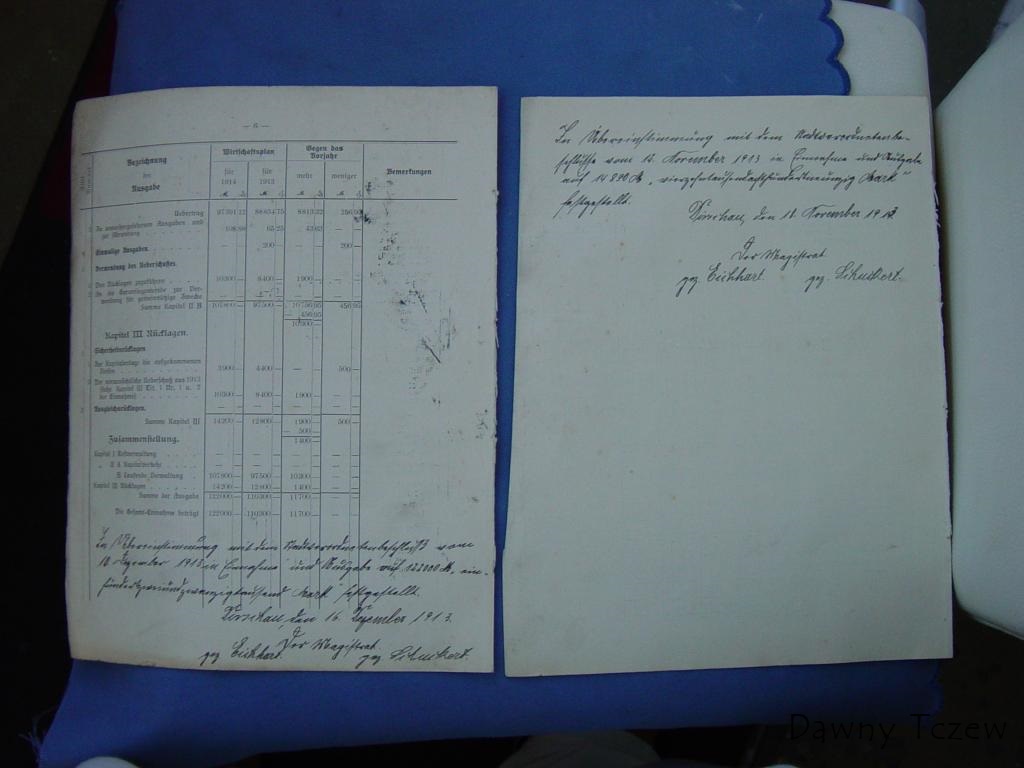 — 6 —
Bezeichnung der Ausgabe | Wirtschaftsplan | Gegen das Vorjahr | Bemerkungen
für 1914 | für 1913 | mehr | weniger
Uebertrag 97391 12 | 88834 75 | 8813 32 | 256 90
Zu unvorhergesehenen Ausgaben und
zur Abrundung 108 88 | 65 25 | 43 63 | —
Einmalige Ausgaben. — | 200 | — | 200 —
Verwendung des Ueberschusses.
Den Rücklagen zuzuführen 10300 — | 8400 — | 1900 — | —
An die Garantiegemeinde zur Ver-
wendung für gemeinnützige Zwecke — | — | — | —
Summe Kapitel II B 107800 — | 97500 — | 10756 95 | 456 95
— 456 95
10300 —
Kapitel III Rücklagen.
Sicherheitsrücklagen
Der Kapitalanlage die aufgekommenen
Zinsen 3900 — | 4400 — | — | 500 —
Der voraussichtliche Ueberschuß aus 1913
(siehe Kapitel III Tit. 1 Nr. 1 u. 2
der Einnahme) 10300 — | 8400 — | 1900 — | —
Ausgleichsrücklagen. — | — | — | —
Summe Kapitel III 14200 — | 12800 — | 1900 — | 500 —
— 500 —
1400 —
Zusammenstellung.
Kapitel I Restverwaltung — | — | — | —
„ II A Kapitalverkehr — | — | — | —
B Laufende Verwaltung 107800 — | 97500 — | 10300 — | —
Kapitel III Rücklagen 14200 — | 12800 — | 1400 — | —
Summe der Ausgabe 122000 — | 110300 — | 11700 — | —
Die Gesamt-Einnahme beträgt 122000 — | 110300 — | 11700 — | —
In Übereinstimmung mit dem Stadtverordnetenbeschluß vom
Dezember 1913 in Einnahme und Ausgabe auf 122000 M, „ein-
hundertzweiundzwanzigtausend Mark" festgestellt.
Dirschau, den 16. Dezember 1913.
Der Magistrat
gez. Eichhart. gez. Schuckert.
In Übereinstimmung mit dem Stadtverordnetenbe-
schlusse vom November 1913 in Einnahme und Ausgabe
auf 14890 M, „vierzehntausendachthundertneunzig Mark"
festgestellt.
Dirschau, den November 1913.
Der Magistrat
gez. Eichhart. gez. Schuckert.
Dawny Tczew